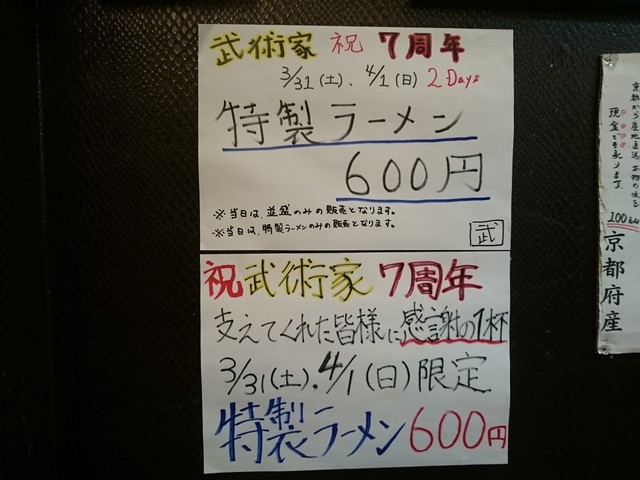 武術家 祝 7周年
3/31(土). 4/1(日) 2 Days
特製ラーメン
600円
※当日は、並盛のみの販売となります。
※当日は、特製ラーメンのみの販売となります。
武
祝 武術家 7周年
支えてくれた皆様に感謝の1杯
3/31(土).4/1(日)限定
特製ラーメン600円
京都府産